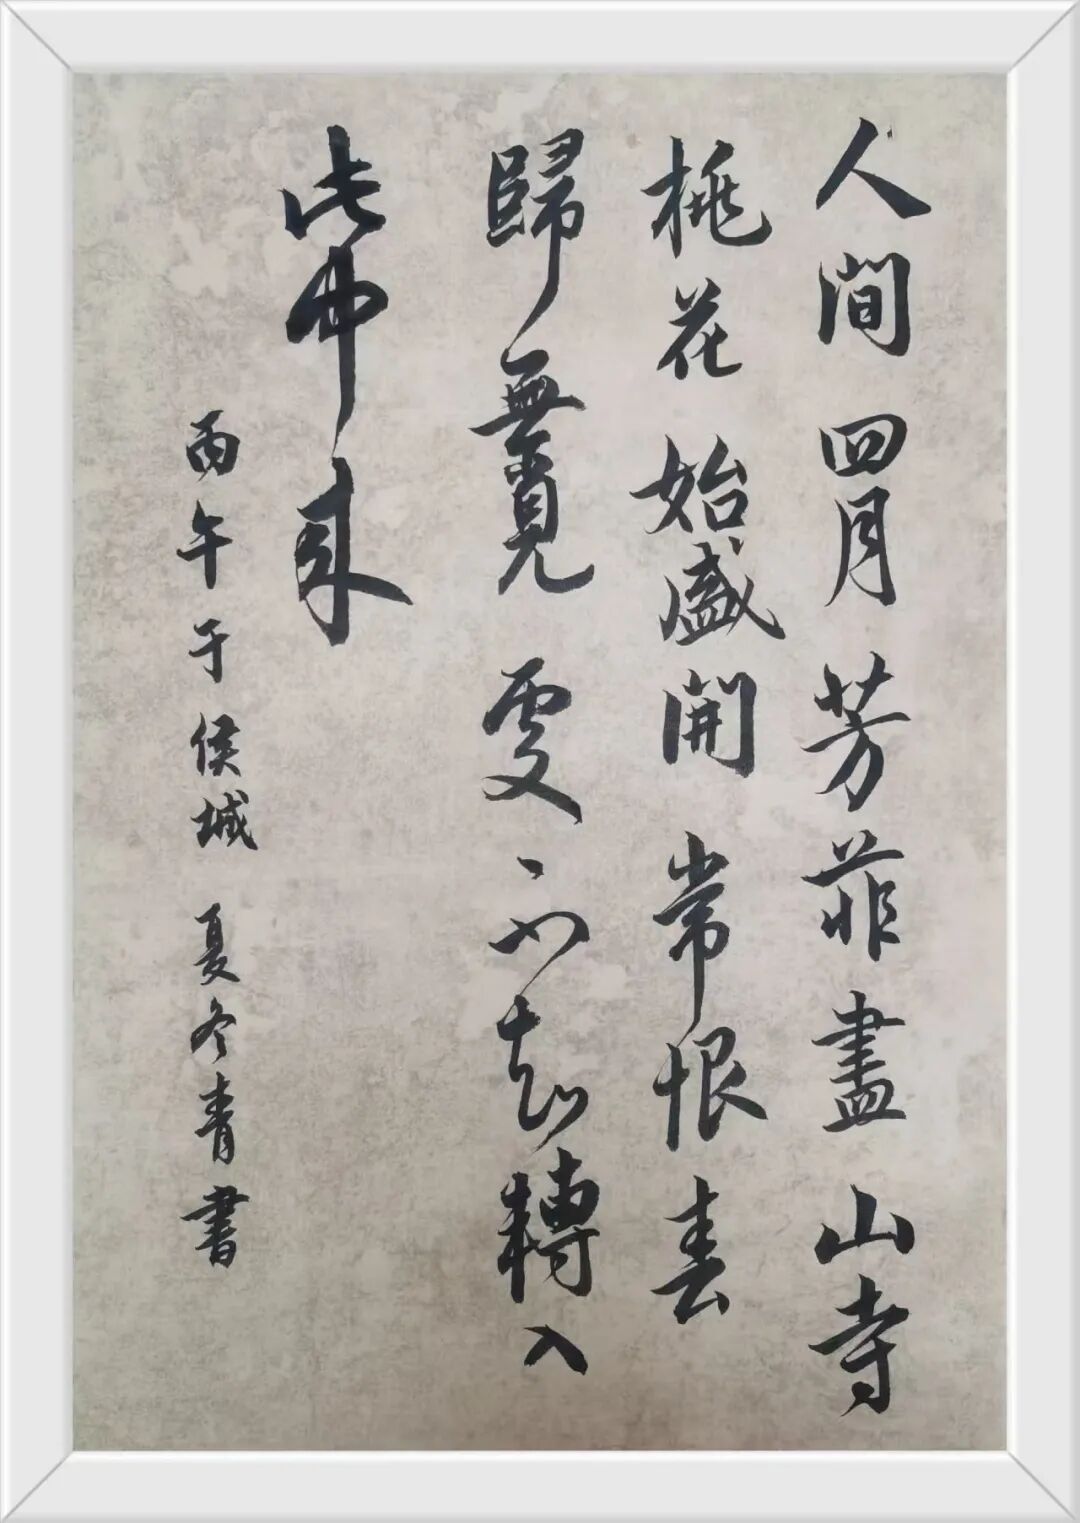 人間四月芳菲盡山寺
桃花始盛開常恨春
歸無覓處不知轉入
此中來
丙午于侯城夏冬青書